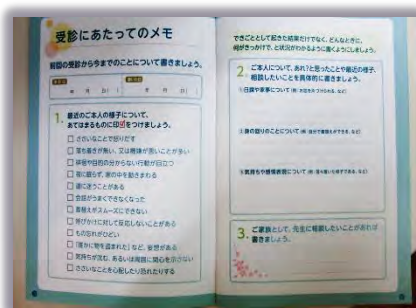 受診にあたってのメモ
前回の受診から今までのことについて書きましょう。
年 月 日( )
年 月 日( )
1. 最近のご本人の様子について、
あてはまるものに印☑をつけましょう。
□ ささいなことで怒りだす
□ 落ち着きが無い、又は機嫌が悪いことが多い
□ 徘徊や目的の分からない行動が目立つ
□ 夜に眠らず、家の中を動きまわる
□ 道に迷うことがある
□ 会話がうまくできなくなった
□ 着替えがスムーズにできない
□ 呼びかけに対して反応しないことがある
□ もの忘れがひどい
□ 「誰かに物を盗まれた」など、妄想がある
□ 気持ちが沈む、あるいは周囲に関心を示さない
□ ささいなことを心配したり恐れたりする
できごととして起きた結果だけでなく、どんなときに、
何がきっかけで、と状況がわかるように書くようにしましょう。
2. ご本人について、あれ?と思ったことや最近の様子、
相談したいことを具体的に書きましょう。
①日課や家事について
②身の回りのことについて
③気持ちや感情表現について
3. ご家族として、先生に相談したいことがあれば
書きましょう。